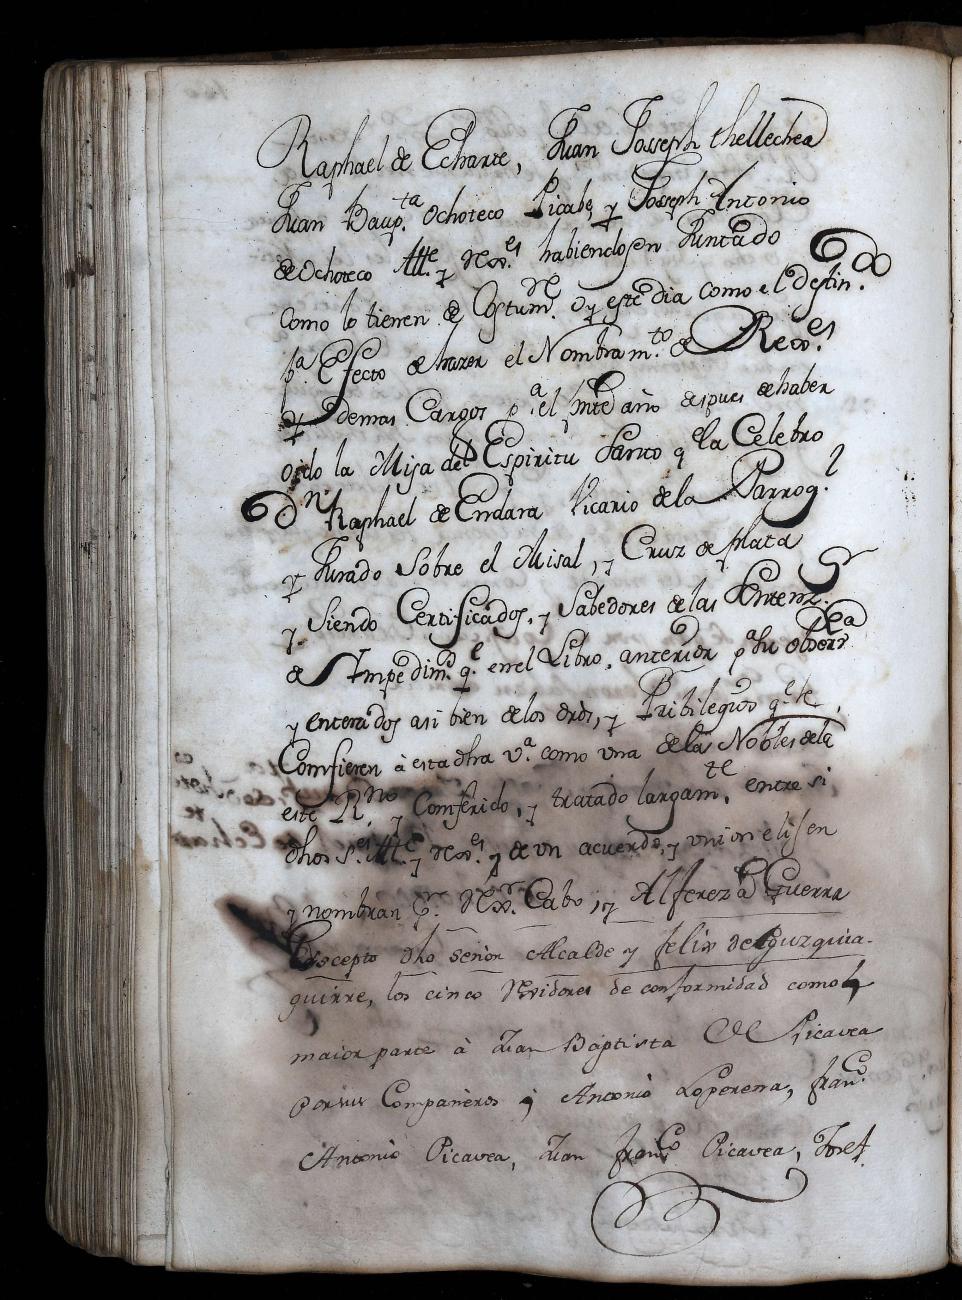 Raphael de Echarte, Juan Joseph thellechea
Juan Baup.ta Ochoteco Picabe, y Joseph Antonio
de Ochoteco Alle. y Rex.es habiendosen Juntado
como lo tienen de Costum.re oy este dia como el Destin.do
p.a Efecto de hazer el Nombram.to de Rex.es
y demas Cargos p.a el pnte año despues de haber
oido la Misa del Espiritu Santo q la Celebro
D.n Raphael de Endara Vicario de la Parrog.l
y Jurado Sobre el Misal, y Cruz de plata
y Siendo Certificados, y Sabedores de las
de Impedim.to q.e en el Libro anterior p.a su
y enterados asi bien de los dros, y Pribilegios q.e se
Comfieren à esta dha v.a como vna de las Nobles de la
este R.no y Comferido, y tratado largam.te entre si
dhos S.es Alle. y Rex.es y de vn acuerdo, y vnion elijen
y nombran Rex.r Cabo, y Alferez a Guerra
Escepto dho señor Alcalde y felix de
guirre, los cinco Rexidores de conformidad como
maior parte à Juan Baptista Picavea
por sus Compañeros à Antonio Loperena, fran.co
Antonio Picavea, Juan fran.co Picavea, Josef